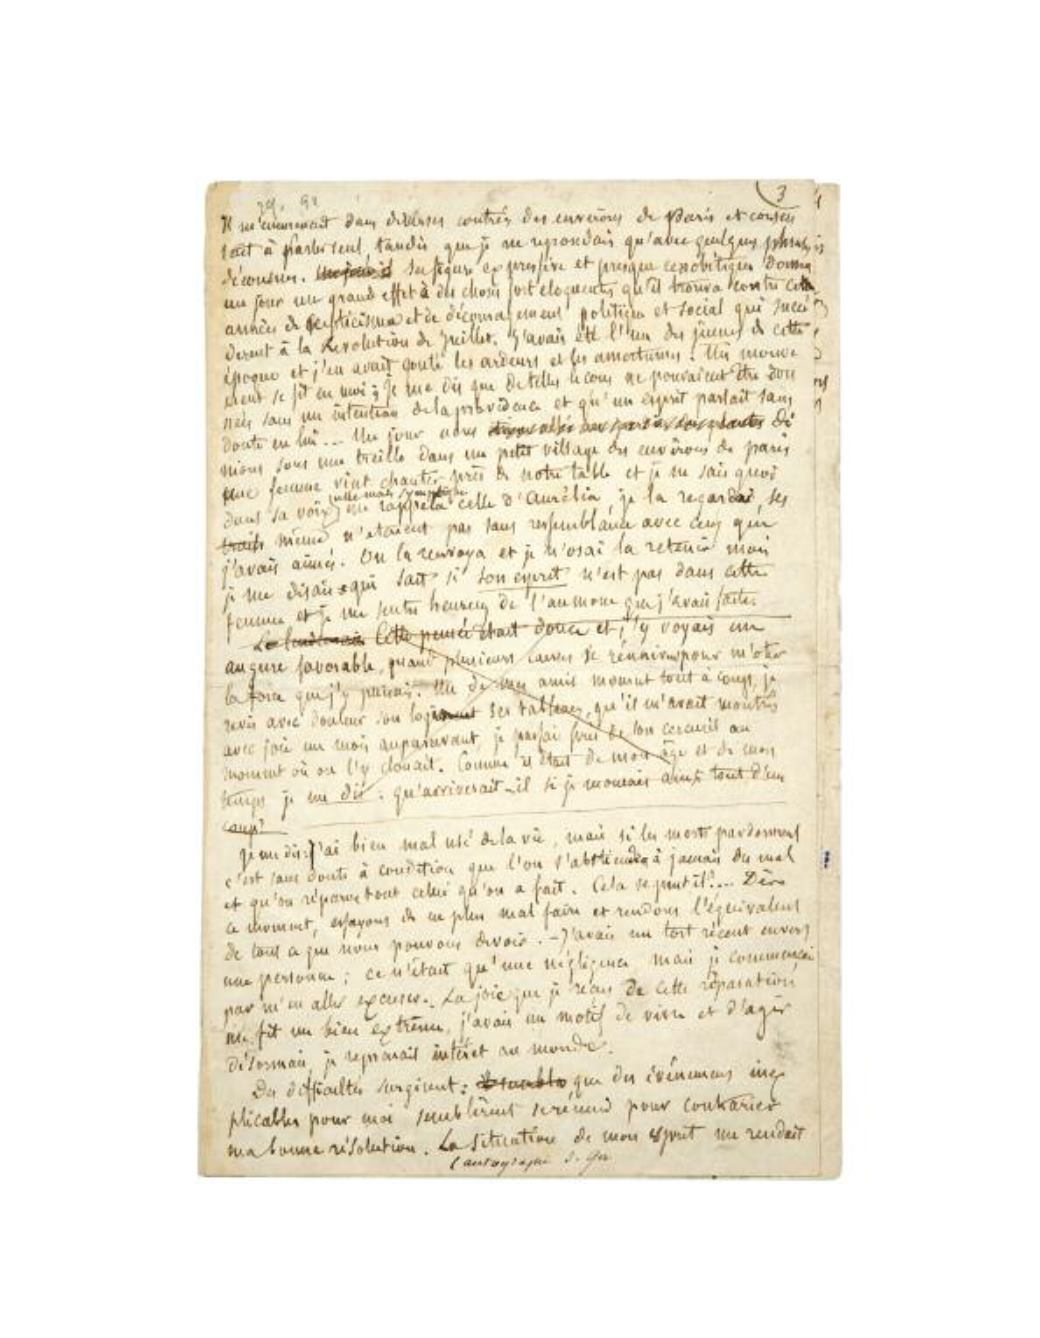 3
Il m'emmenait dans diverses contrées des environs de Paris et consen
tait à parler seul, tandis que je ne répondais qu'avec quelques phrases
décousues. sa figure expressive et presque cénobitique donna
un jour un grand effet à des choses fort éloquentes qu'il trouva contre ces
années de scepticisme et de découragement politique et social qui succé
dèrent à la Révolution de Juillet. J'avais été l'un des jeunes de cette
époque et j'en avait goûté les ardeurs et les amertumes. Un mouve
ment se fit en moi ; Je me dis que de telles leçons ne pouvaient être don
nées sans une intention de la providence et qu'un esprit parlait sans
doute en lui... Un jour nous di
nions sous une treille dans un petit village des environs de paris
une femme vint chanter près de notre table et je ne sais quoi
dans sa voix usée mais sympathique me rappela celle d'Aurélia, je la regardai, ses
traits même n'étaient pas sans ressemblance avec ceux que
j'avais aimés. On la renvoya et je n'osai la retenir mais
je me disais : qui sait si son esprit n'est pas dans cette
femme et je me sentis heureux de l'aumone que j'avais faite.
Le lendemain Cette pensée était douce et j'y voyais un
augure favorable, quand plusieurs causes se réunirent pour m'oter
la force que j'y puisais. Un de mes amis mourut tout à coup, je
revis avec douleur son logement ses tableaux, qu'il m'avait montrés
avec joie un mois auparavant, je passai près de son cercueil au
moment où on l'y clouait. Comme il était de mon âge et de mon
temps je me dis : qu'arriverait-il si je mourais ainsi tout d'un
coup?
Je me dis : J'ai bien mal usé de la vie, mais si les morts pardonnent
c'est sans doute à condition que l'on s'abstiendra à jamais du mal
et qu'on réparera tout celui qu'on a fait. Cela se peut il?... Dès
ce moment, essayons de ne plus mal faire et rendons l'équivalent
de tout ce que nous pouvons devoir. - J'avais un tort récent envers
une personne ; ce n'était qu'une négligence mais je commençai
par m'en aller excuser. La joie que je reçus de cette réparation
me fit un bien extrême, j'avais un motif de vivre et d'agir
désormais, je reprenais intérêt au monde.
Des difficultés surgirent : que des événemens inex
plicables pour moi semblèrent se réunir pour contrarier
ma bonne résolution. La situation de mon esprit me rendait